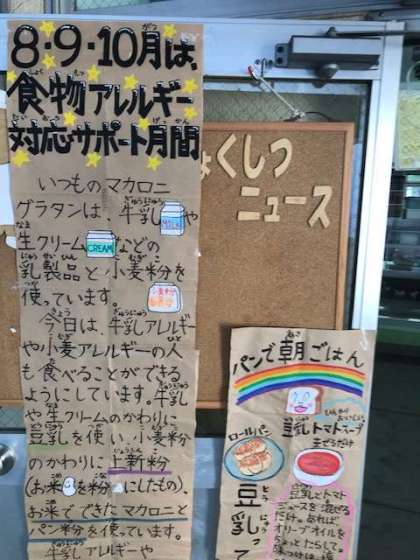 8・9・10月は、
食物アレルギー
対応サポート月間
いつものマカロニ
グラタンは、牛乳や
生クリームなどの
乳製品と小麦粉を
使っています。
今日は、牛乳アレルギー
や小麦アレルギーの人
も食べることができる
ようにしています。牛乳
や生クリームのかわりに
豆乳を使い、小麦粉
のかわりに上新粉
(お米を粉にしたもの)、
お米でできたマカロニと
パン粉を使っています。
牛乳アレルギーや
MILK
CREAM
小麦粉
ょくしつ
ニュース
パンで朝ごはん
豆乳トマトスープ
ロールパン
豆乳っ
豆乳とトマト
ジュースを混ぜる
だけ。あれば
オリーブオイルを